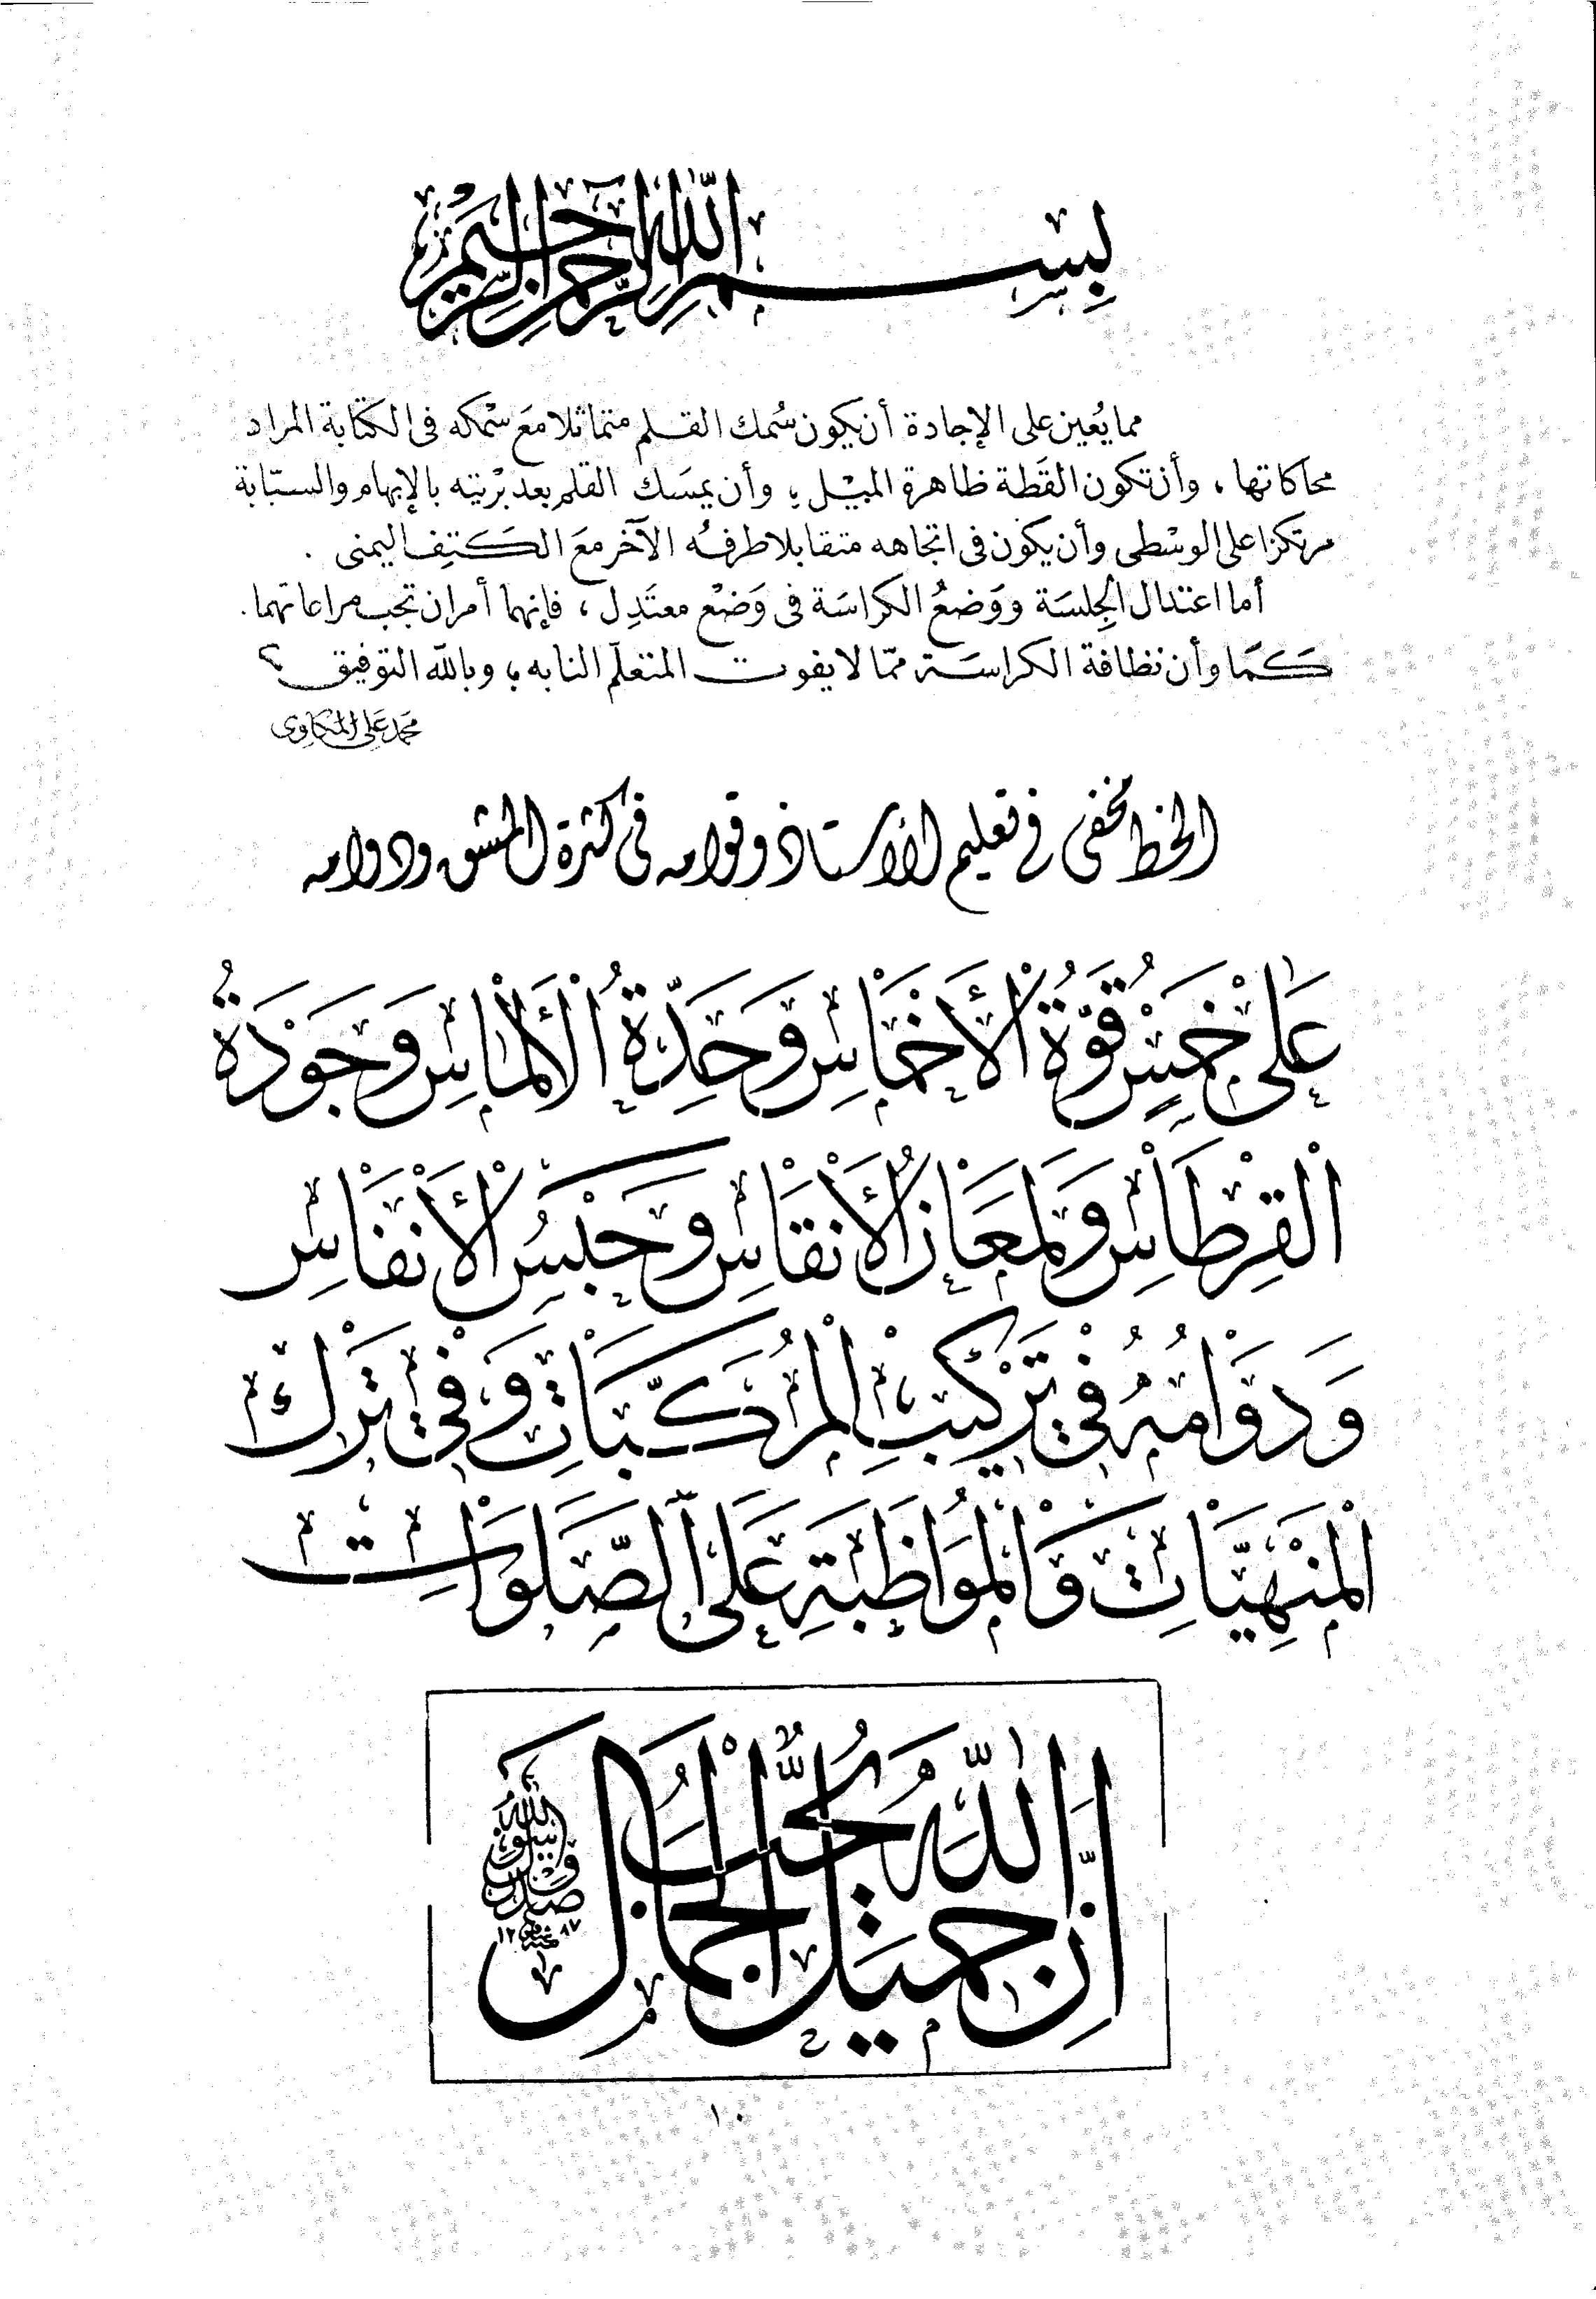 بِسْمِ اللّٰهِ الرَّحْمٰنِ الرَّحِيْمِ
مما يُعين على الإجادة أن يكون سُمك القلم متماثلا مَعَ سُمكه فى الكتابة المراد
محاكاتها ، وأن تكون القَطة ظاهرة الميْل ، وأن يمسَك القلم بعد بَرْيته بالإبهام والسبّابة
مرتكزا على الوسْطى وأن يكون فى اتجاهه متقابلا طرفُه الآخر مَعَ الكَتِف اليمنى .
أما اعتدال الجِلسَة ووَضعُ الكراسَة فى وَضْع معتَدِل ، فإنهما أمران تجب مراعاتهما .
كَمَا وأن نظافة الكراسَة ممّا لا يفوت المتعلّم النابه ، وبالله التوفيق ؟
محمد على المكاوى
الخط مخفى فى تعليم الأستاذ وقوامه فى كثرة المشق ودوامه
عَلٰى خَمْسٍ قُوَّةُ الْأَخْمَاسِ وَحِدَّةُ الْأَلْمَاسِ وَجَوْدَةُ
الْقِرْطَاسِ وَلَمَعَانُ الْأَنْقَاسِ وَحَبْسُ الْأَنْفَاسِ
وَدَوَامُهُ فِى تَرْكِيبِ الْمُرَكَّبَاتِ وَفِى تَرْكِ
الْمَنْهِيَّاتِ وَالْمُوَاظَبَةِ عَلَى الصَّلَوَاتِ
اِنَّ اللّٰهَ جَمِيْلٌ يُحِبُّ الْجَمَالَ
١٠